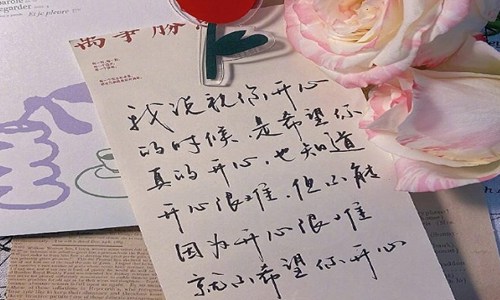 parole
regarder
Et je pleure :
萬事勝
我说祝你开心
的时候，是希望你
真的开心，也知道
开心很难，但不能
因为开心很难
就不希望你开心